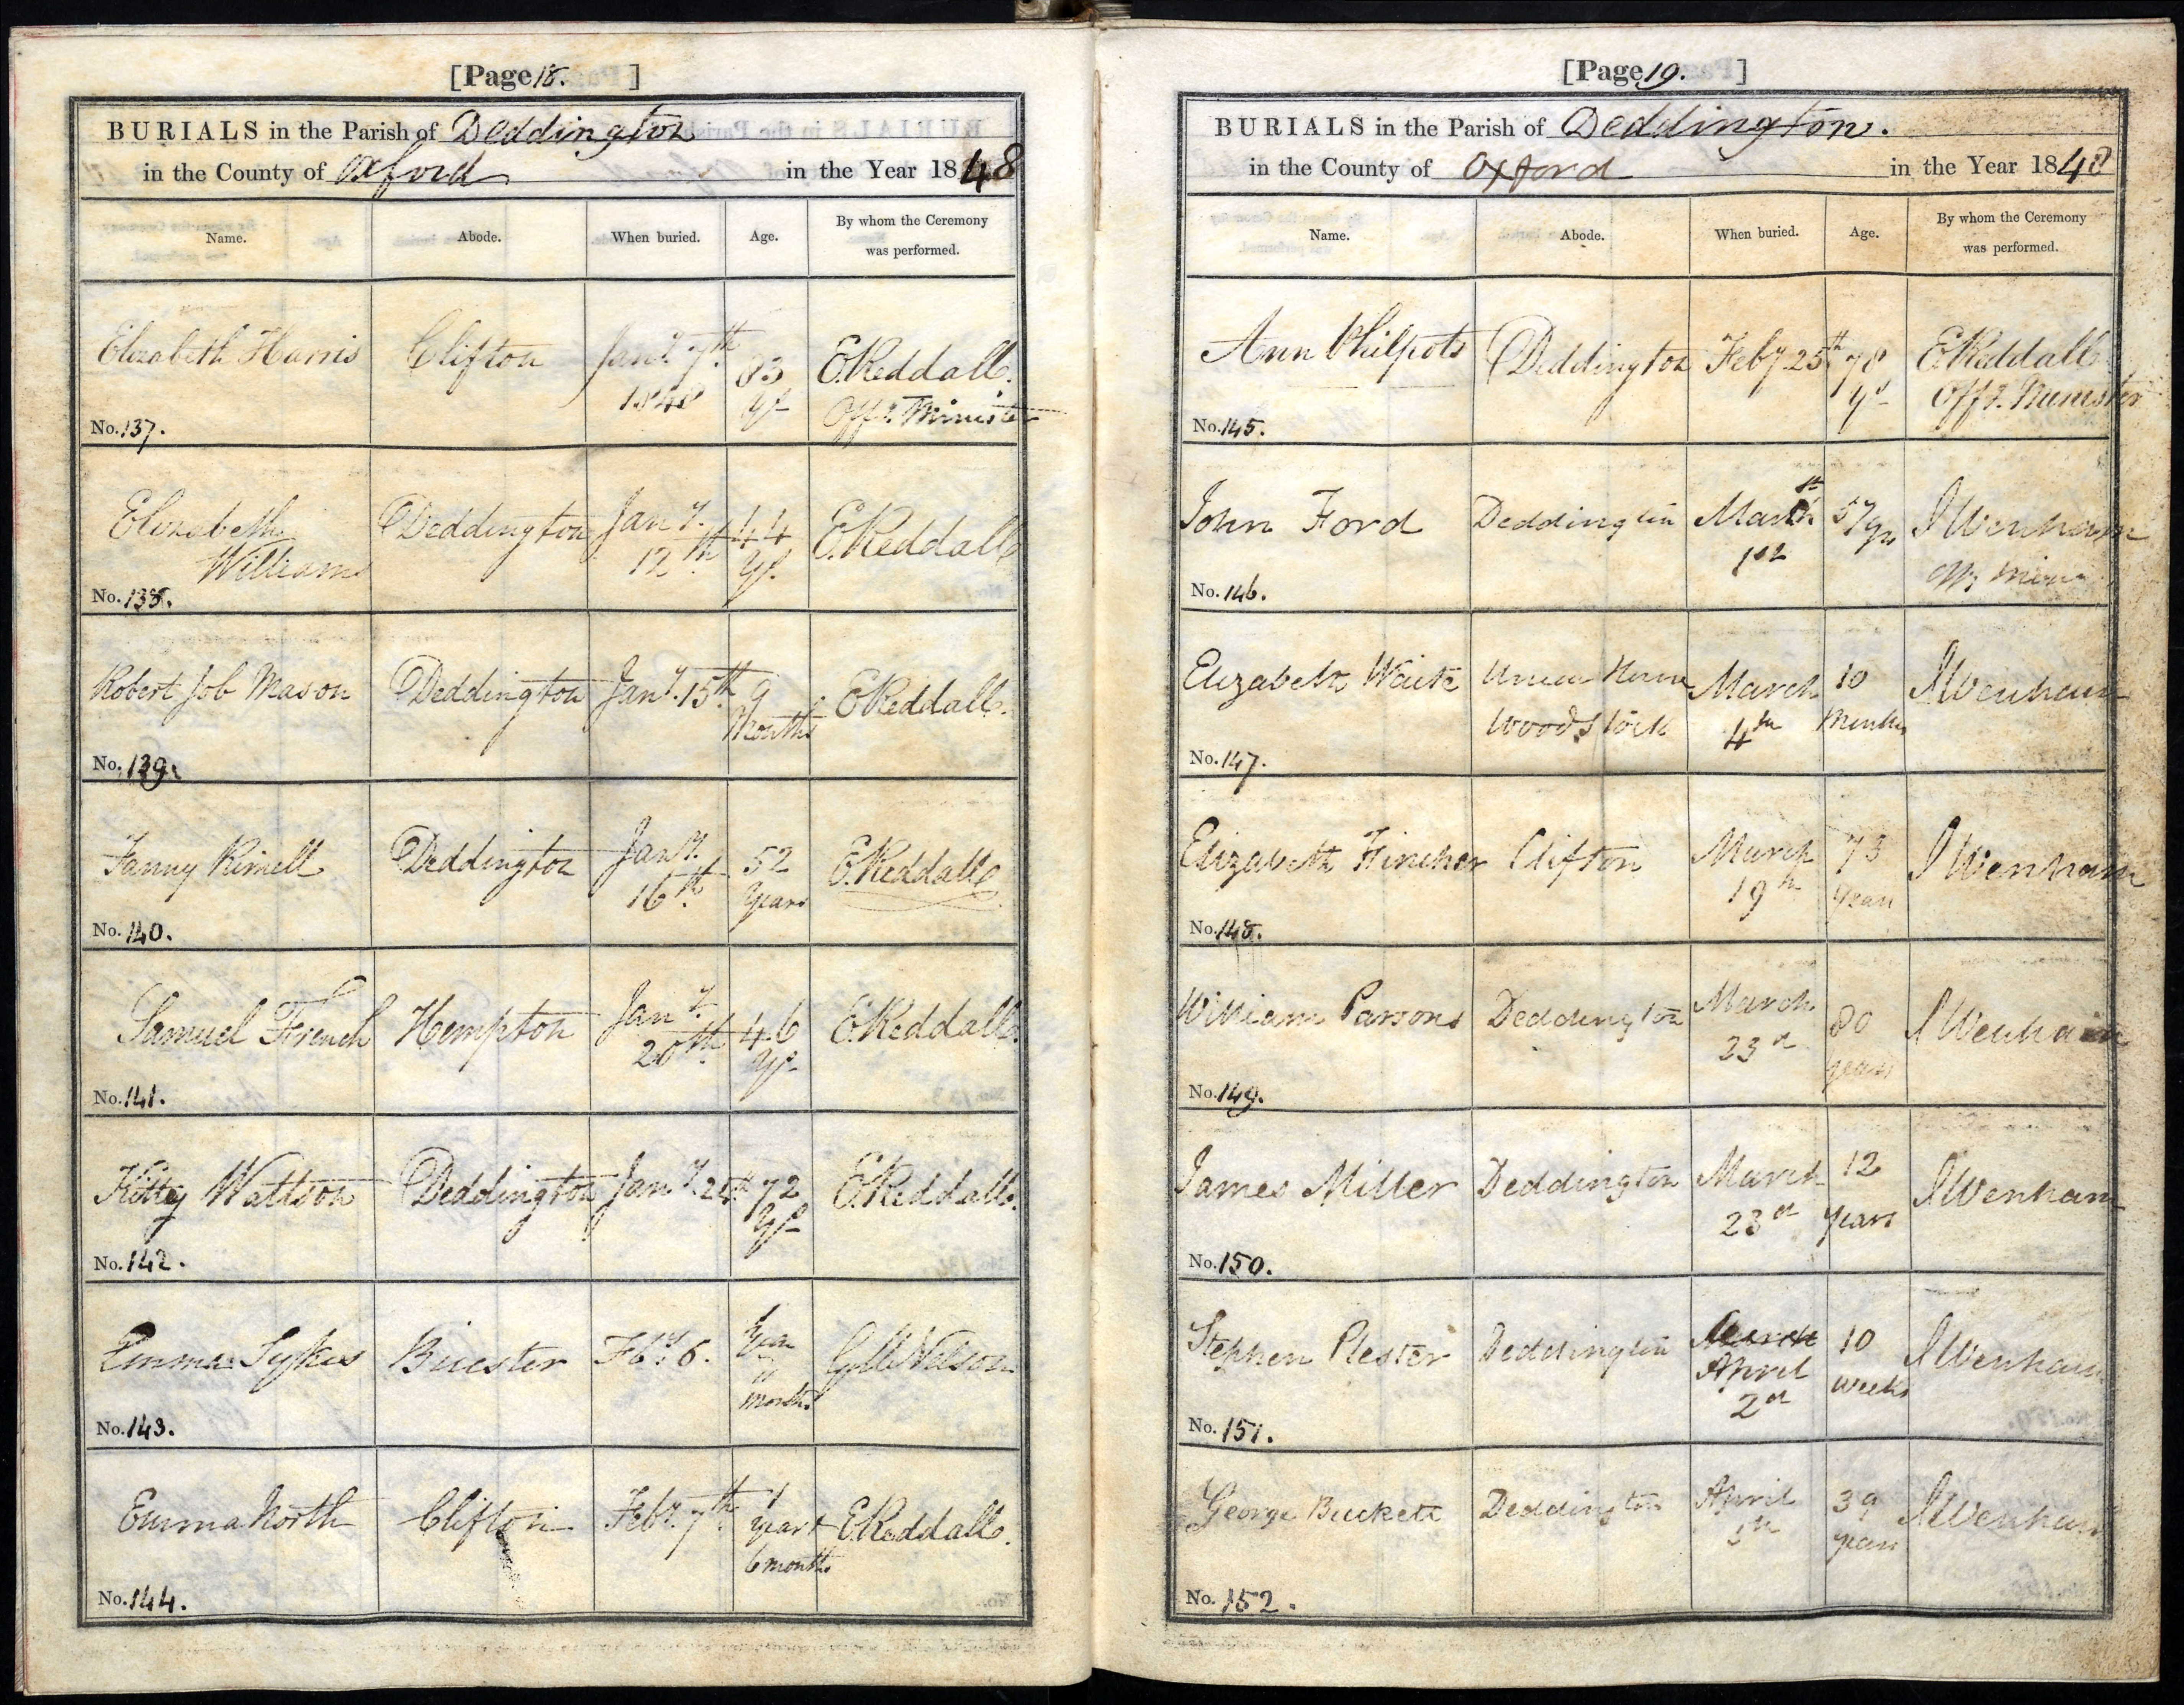 [Page 18. ]
BURIALS in the Parish of Deddington
in the County of Oxford in the Year 1848
Name. Abode. When buried. Age. By whom the Ceremony was performed.
Elizabeth Harris Clifton Jany. 7th 1848 83 ys E. Reddall. Offg. Minister
No. 137.
Elizabeth Williams Deddington Jany. 12th 44 ys. E. Reddall
No. 138.
Robert Job Mason Deddington Jany. 15th 9 Months E Reddall.
No. 139.
Fanny Rimell Deddington Jany. 16th 52 years E. Reddall
No. 140.
Samuel French Hempton Jany. 20th 46 ys E Reddall.
No. 141.
Kitty Wattson Deddington Jany. 24th 72 ys E. Reddall.
No. 142.
Emma Sykes Bicester Feby. 6. months Wilson
No. 143.
Emma North Clifton Feby. 7th 1 year & 6 months E Reddall.
No. 144.
[Page 19. ]
BURIALS in the Parish of Deddington.
in the County of Oxford in the Year 1848
Name. Abode. When buried. Age. By whom the Ceremony was performed.
Ann Philpots Deddington Feby. 25th 78 ys E. Reddall Offg. Minister
No. 145.
John Ford Deddington March 1st 57 yrs J Wenham
No. 146.
Elizabeth Waite Union House Woodstock March 4th 10 Months J Wenham
No. 147.
Elizabeth Fincher Clifton March 19th 73 years J Wenham
No. 148.
William Parsons Deddington March 23d 80 years J Wenham
No. 149.
James Miller Deddington March 23d 12 years J Wenham
No. 150.
Stephen Plester Deddington March April 2d 10 weeks J Wenham
No. 151.
George Buckett Deddington April 39 years J Wenham
No. 152.